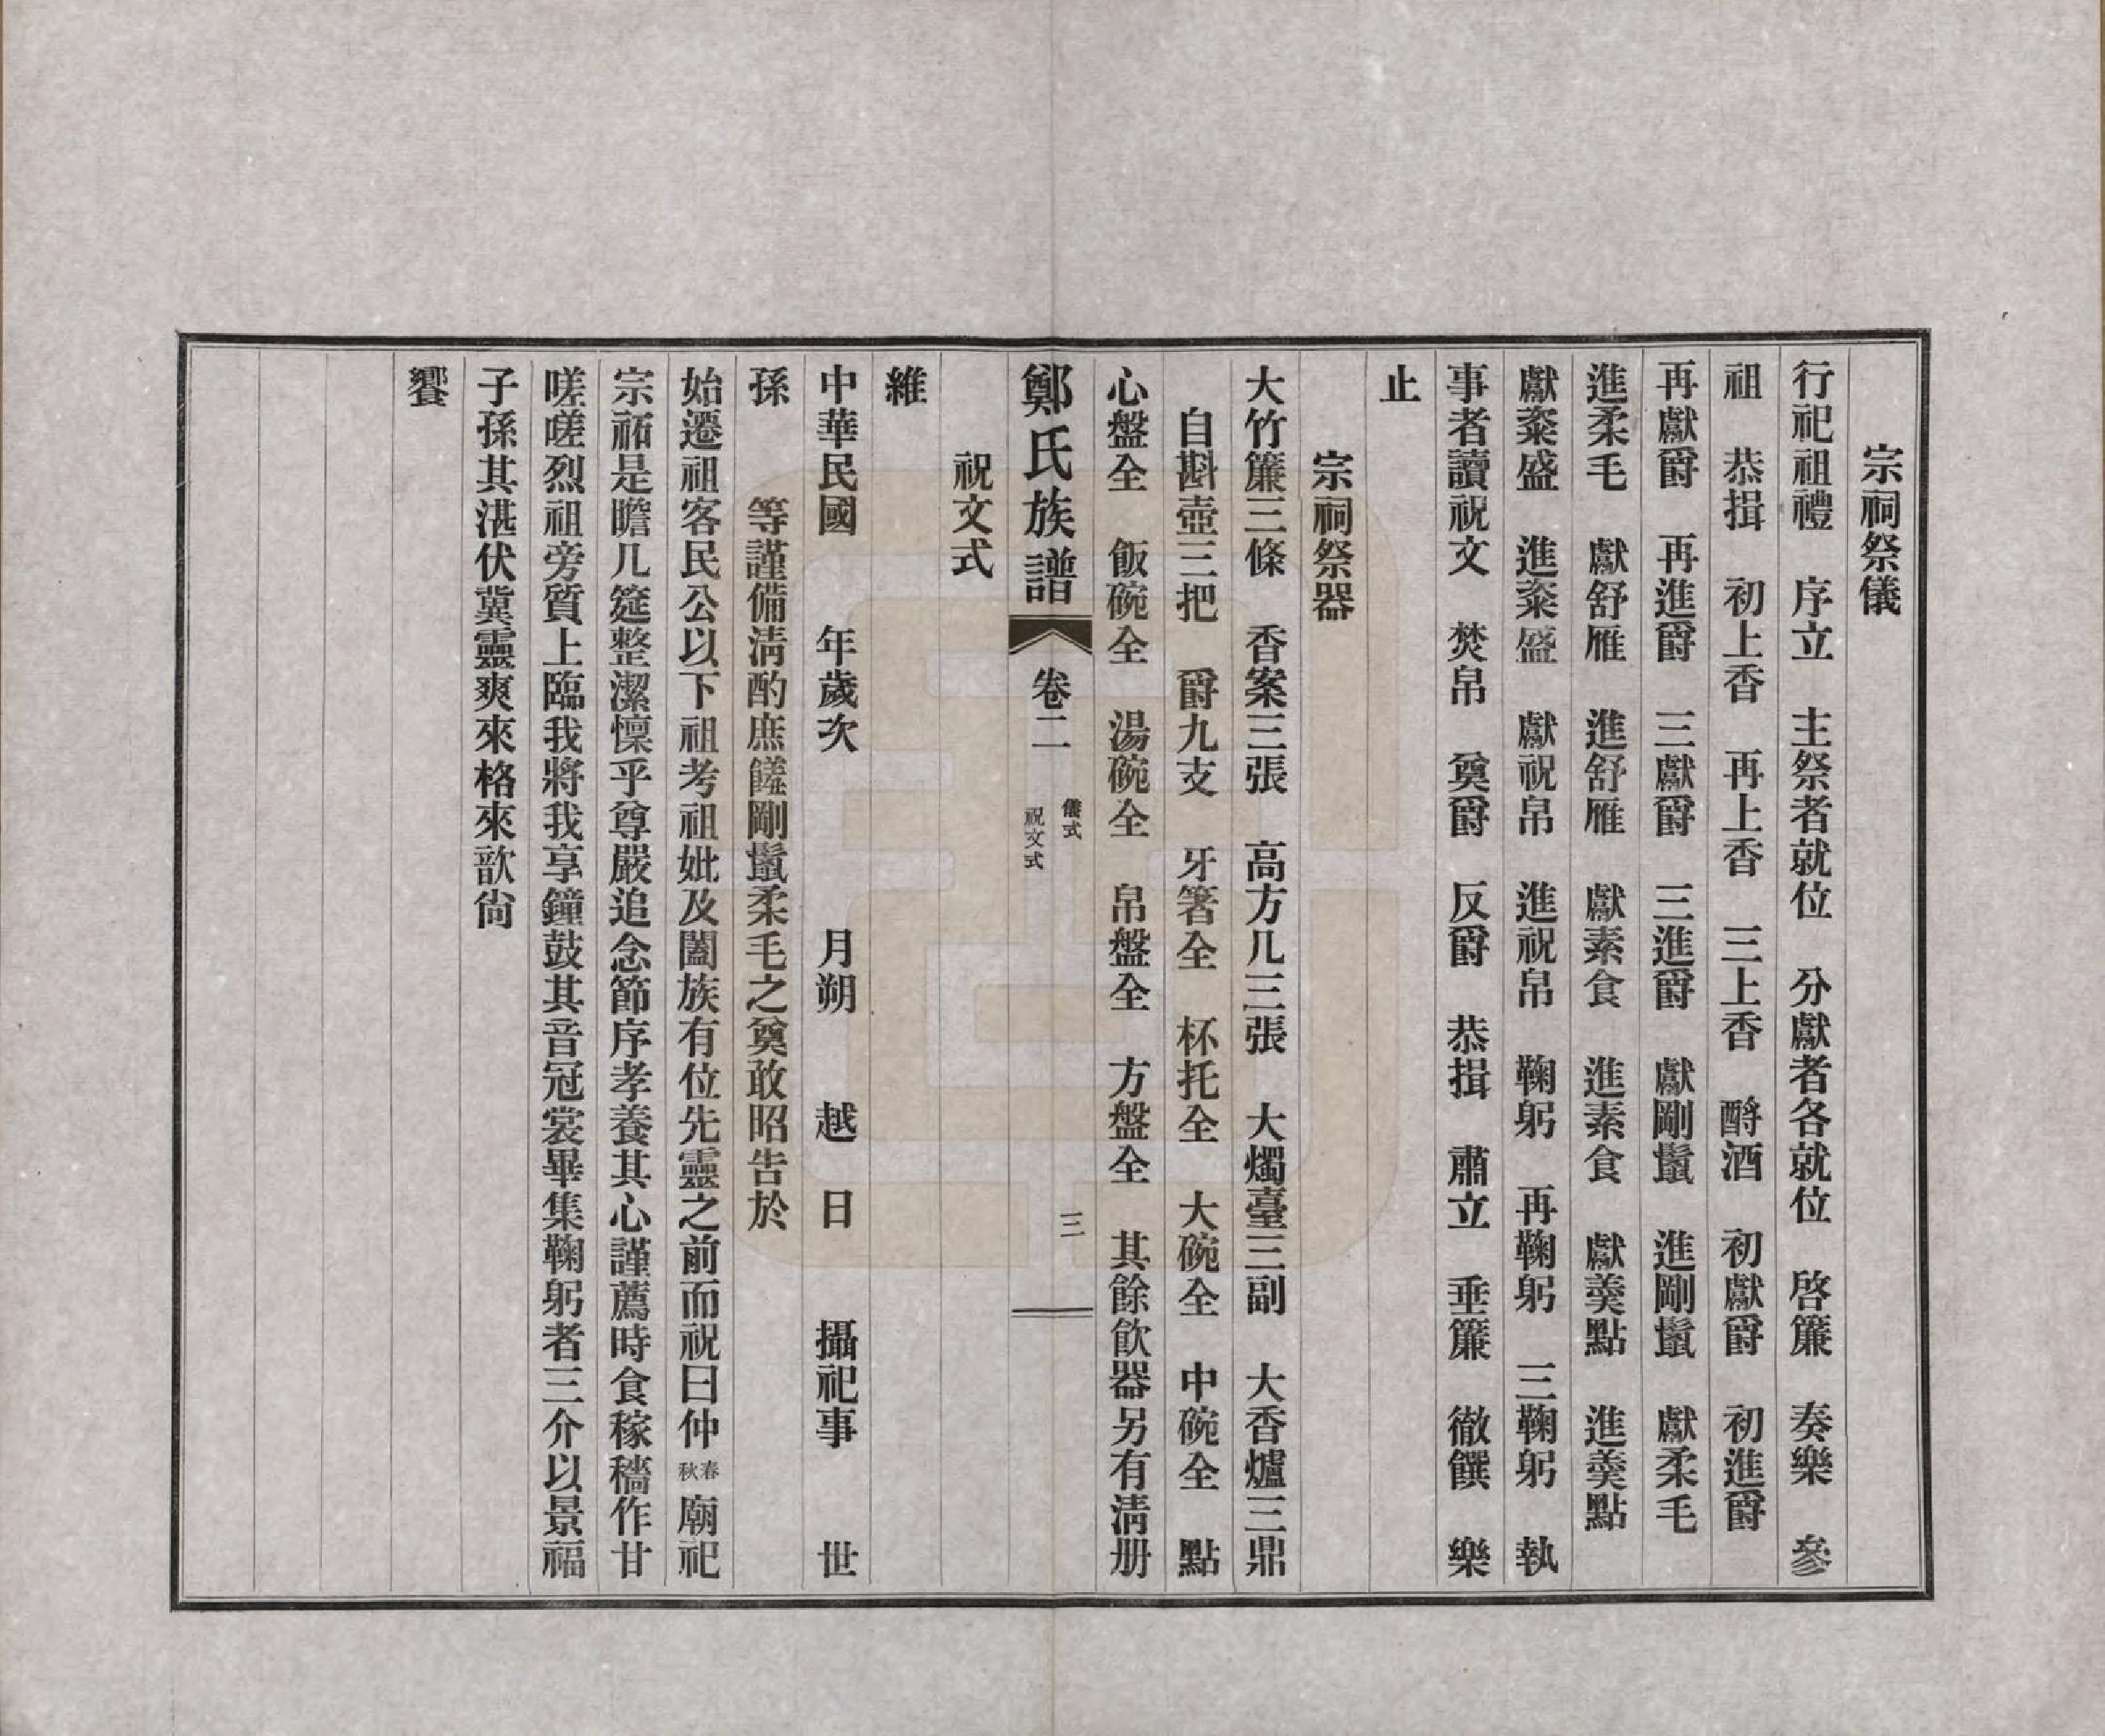 宗祠祭儀
行祀祖禮　序立　主祭者就位　分獻者各就位　啓簾　奏樂　參
祖　恭揖　初上香　再上香　三上香　酹酒　初獻爵　初進爵
再獻爵　再進爵　三獻爵　三進爵　獻剛鬛　進剛鬛　獻柔毛
進柔毛　獻舒雁　進舒雁　獻素食　進素食　獻羮點　進羮點
獻粢盛　進粢盛　獻祝帛　進祝帛　鞠躬　再鞠躬　三鞠躬　執
事者讀祝文　焚帛　奠爵　反爵　恭揖　肅立　垂簾　徹饌　樂
止
宗祠祭器
大竹簾三條　香案三張　高方几三張　大燭臺三副　大香爐三鼎
自斟壺三把　爵九支　牙箸全　杯托全　大碗全　中碗全　點
心盤全　飯碗全　湯碗全　帛盤全　方盤全　其餘飲器另有清册
鄭氏族譜　卷二　儀式　祝文式　三
祝文式
維
中華民國　年歲次　月朔　越　日　攝祀事　世
孫　等謹備清酌庶饈剛鬛柔毛之奠敢昭告於
始遷祖客民公以下祖考祖妣及闔族有位先靈之前而祝曰仲春秋廟祀
宗祏是瞻几筵整潔懍乎尊嚴追念節序孝養其心謹薦時食稼穡作甘
嗟嗟烈祖旁質上臨我將我享鐘鼓其音冠裳畢集鞠躬者三介以景福
子孫其湛伏冀靈爽來格來歆尙
饗